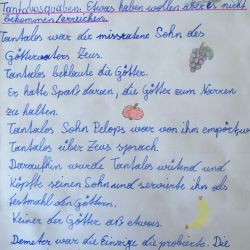 Tantalosqualen: Etwas haben wollen aber es nicht
bekommen/erreichen.
Tantalos war die missratene Sohn des
Göttervaters Zeus.
Tantalos beklaute die Götter.
Er hatte Spaß daran, die Götter zum Narren
zu halten.
Tantalos Sohn Pelops war von ihm empört wie
Tantalos über Zeus sprach.
Daraufhin wurde Tantalos wütend und
köpfte seinen Sohn und servierte ihn als
Festmahl den Göttern.
Keiner der Götter aß etwas.
Demeter war die Einzige die probierte. Die